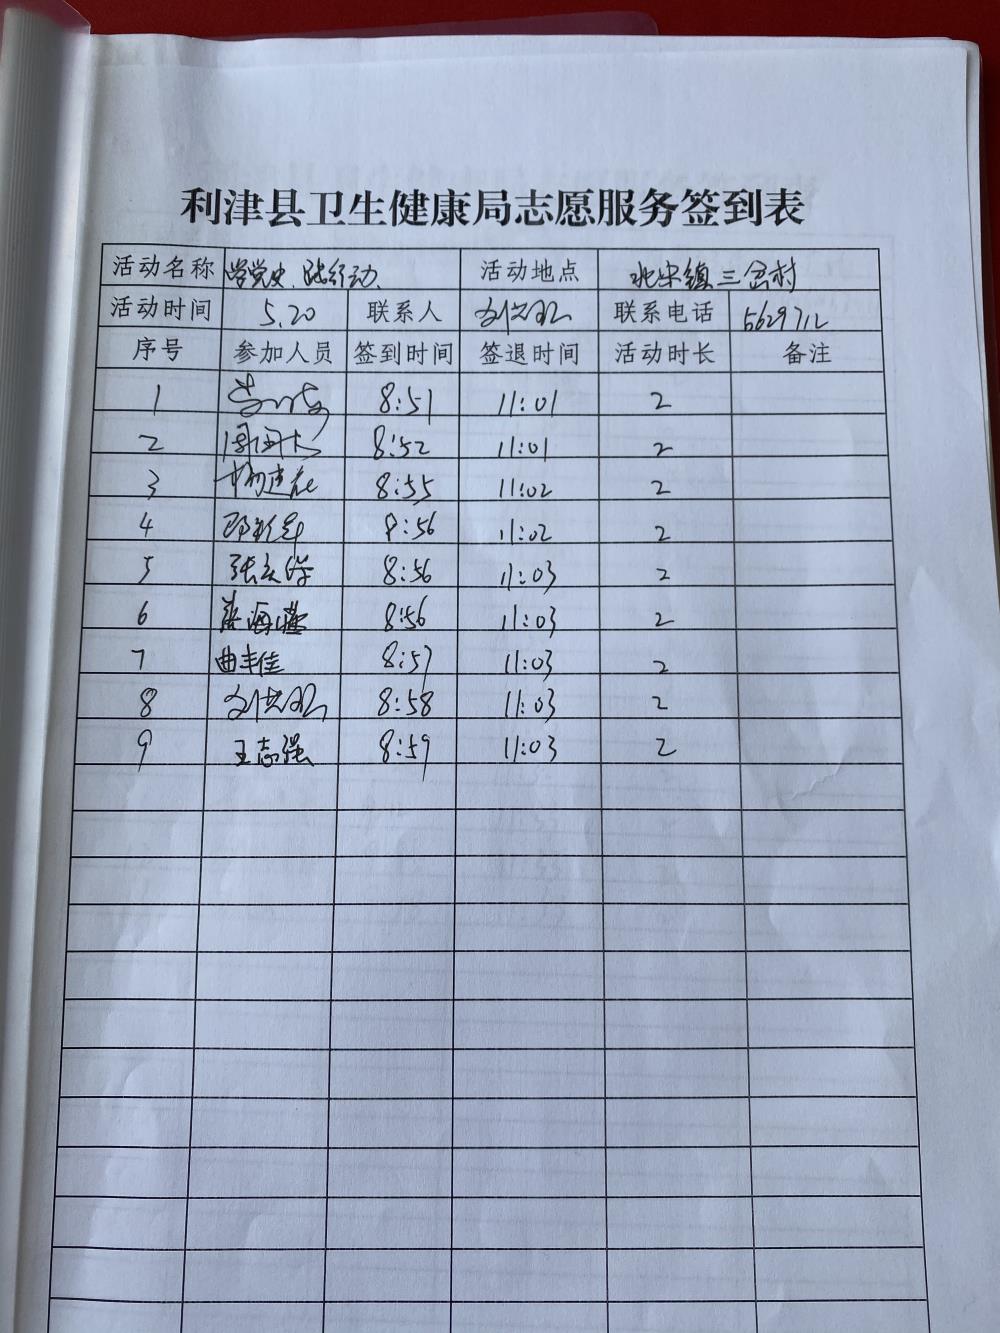 利津县卫生健康局志愿服务签到表
活动名称 学党史 践行动 活动地点 北宋镇三岔村
活动时间 5.20 联系人 联系电话 5629712
序号 参加人员 签到时间 签退时间 活动时长 备注
1 8:51 11:01 2
2 8:52 11:01 2
3 8:55 11:02 2
4 8:56 11:02 2
5 8:56 11:03 2
6 8:56 11:03 2
7 曲丰佳 8:57 11:03 2
8 8:58 11:03 2
9 王志强 8:59 11:03 2